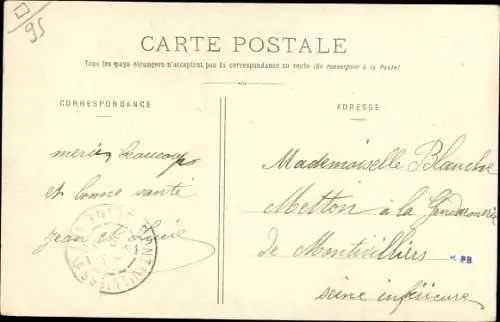 95
CARTE POSTALE
Tous les pays étrangers n'acceptent pas la correspondance au recto (Se renseigner à la Poste)
CORRESPONDANCE
ADRESSE
merci beaucoup
et bonne santé
Jean et Lucie
Mademoiselle Blanche
Metton à la Gendarmerie
de Montivilliers
seine inférieure
PB
MONTIVILLIERS